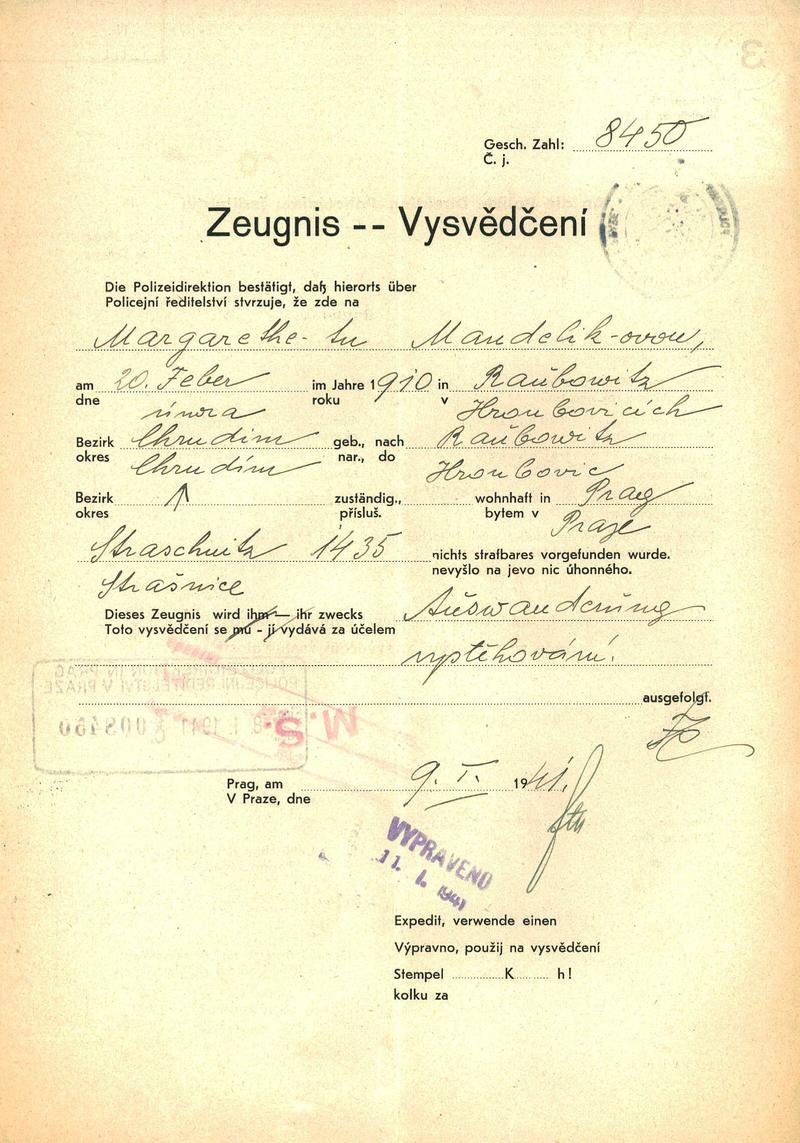 Gesch. Zahl: 8450
Č. j.
Zeugnis -- Vysvědčení
Die Polizeidirektion bestätigt, daß hierorts über
Policejní ředitelství stvrzuje, že zde na
Margarethe- tu Mandelik-ovou,
am 20. Feber im Jahre 1910 in Raubowitz
dne února roku v Hroubovicích
Bezirk Chrudim geb., nach Raubowitz
okres Chrudim nar., do Hroubovic
Bezirk zuständig., wohnhaft in Prag
okres přísluš. bytem v Praze
Straschnitz 1435 nichts strafbares vorgefunden wurde.
Strašnice nevyšlo na jevo nic úhonného.
Dieses Zeugnis wird ihm — ihr zwecks Auswanderung
Toto vysvědčení se mu - jí vydává za účelem
vystěhování.
ausgefolgt.
POLICEJNÍ ŘEDITELSTVÍ V PRAZE
1941 008450
M.S.
Prag, am 9. I. 1941.
V Praze, dne
VYPRAVENO
11. I. 1941
Expedit, verwende einen
Výpravno, použij na vysvědčení
Stempel K h!
kolku za